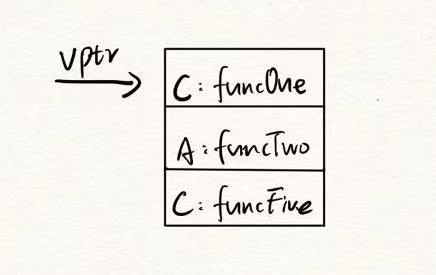 vptr
C: funcOne
A: funcTwo
C: funcFive